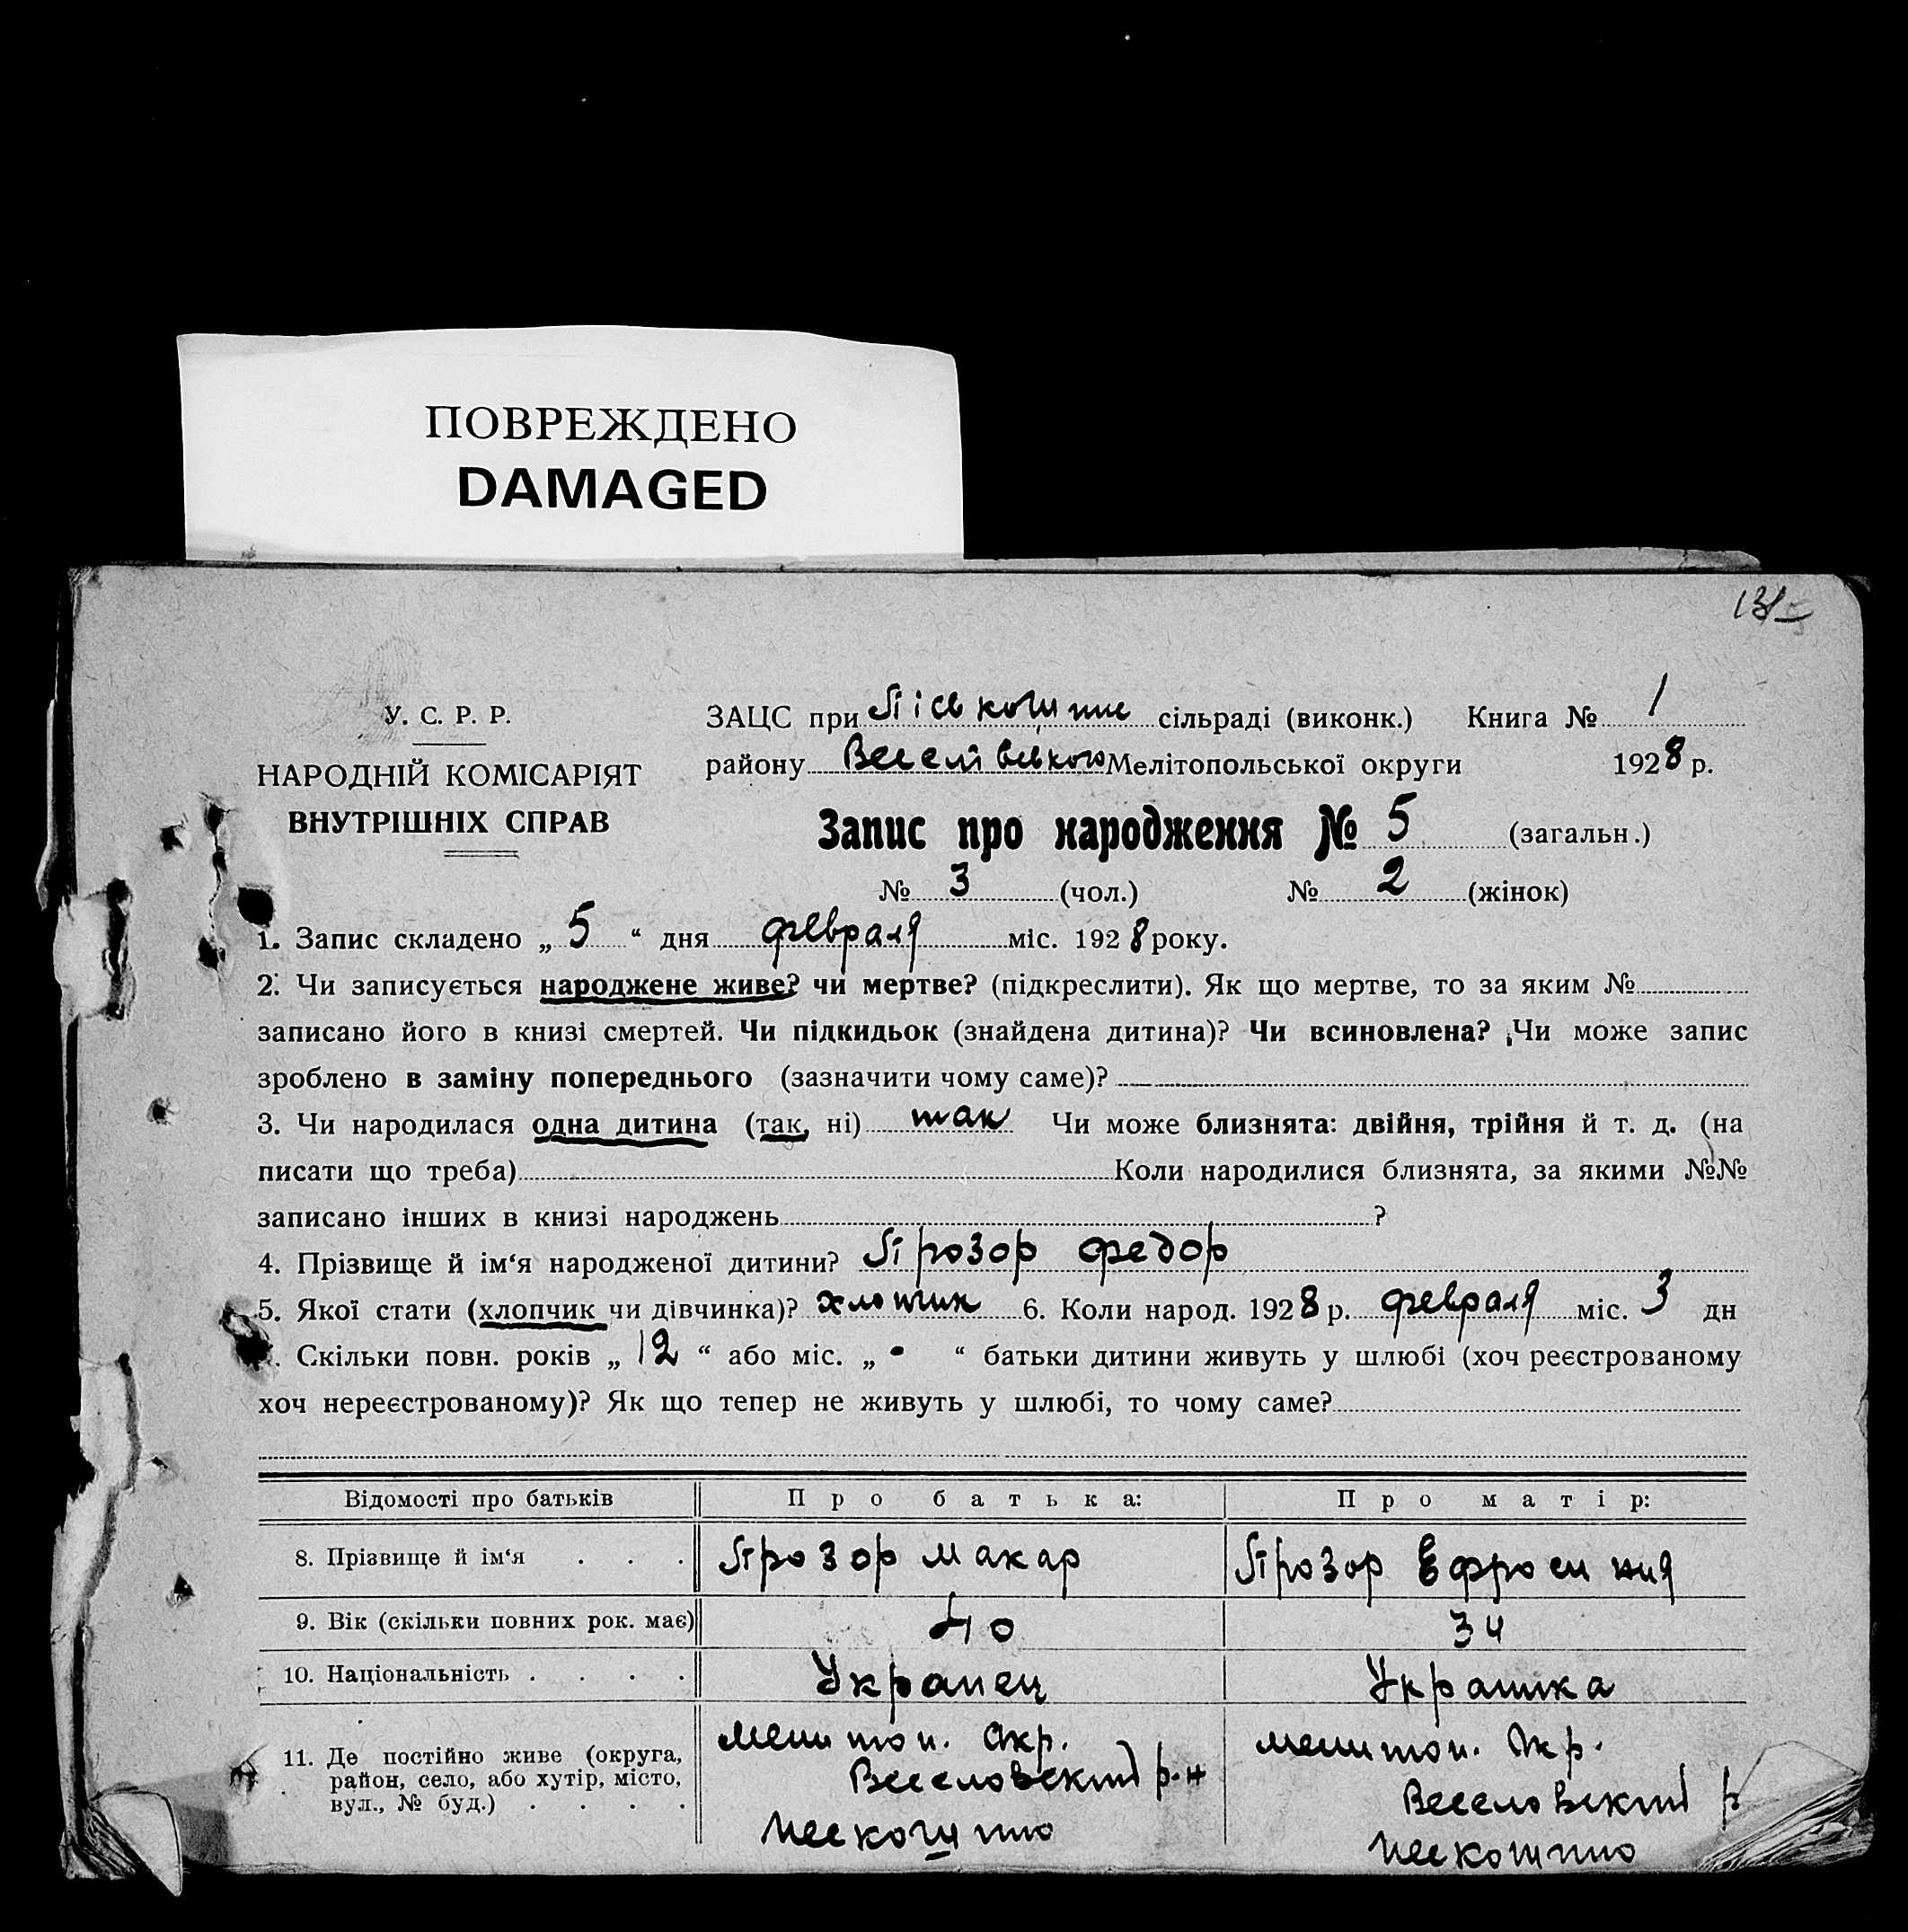 ПОВРЕЖДЕНО
DAMAGED
У. С. Р. Р.
НАРОДНІЙ КОМІСАРІЯТ
ВНУТРІШНІХ СПРАВ
ЗАЦС при сільраді (виконк.) Книга № 1
району Веселівського Мелітопольської округи 1928 р.
Запис про народження № 5 (загальн.)
№ 3 (чол.) № 2 (жінок)
1. Запис складено „ 5 “ дня февраля міс. 1928 року.
2. Чи записується народжене живе? чи мертве? (підкреслити). Як що мертве, то за яким №
записано його в книзі смертей. Чи підкидьок (знайдена дитина)? Чи всиновлена? Чи може запис
зроблено в заміну попереднього (зазначити чому саме)?
3. Чи народилася одна дитина (так, ні) так Чи може близнята: двійня, трійня й т. д. (на
писати що треба) Коли народилися близнята, за якими №№
записано інших в книзі народжень ?
4. Прізвище й ім‘я народженої дитини? Прозор Федор
5. Якої стати (хлопчик чи дівчинка)? хлопчик 6. Коли народ. 1928 р. февраля міс. 3 дн
. Скільки повн. років „ 12 “ або міс. „ • “ батьки дитини живуть у шлюбі (хоч реєстрованому
хоч нереєстрованому)? Як що тепер не живуть у шлюбі, то чому саме?
Відомості про батьків Про батька: Про матір:
8. Прізвище й ім‘я . . . Прозор Макар Прозор Ефросиния
9. Вік (скільки повних рок. має) 40 34
10. Національність . . . . Украиец Украинка
11. Де постійно живе (округа,
район, село, або хутір, місто,
вул., № буд.) . . . .
Мелитоп. Окр.
Веселовский р-н
Мелитоп. Окр.
Веселовский р